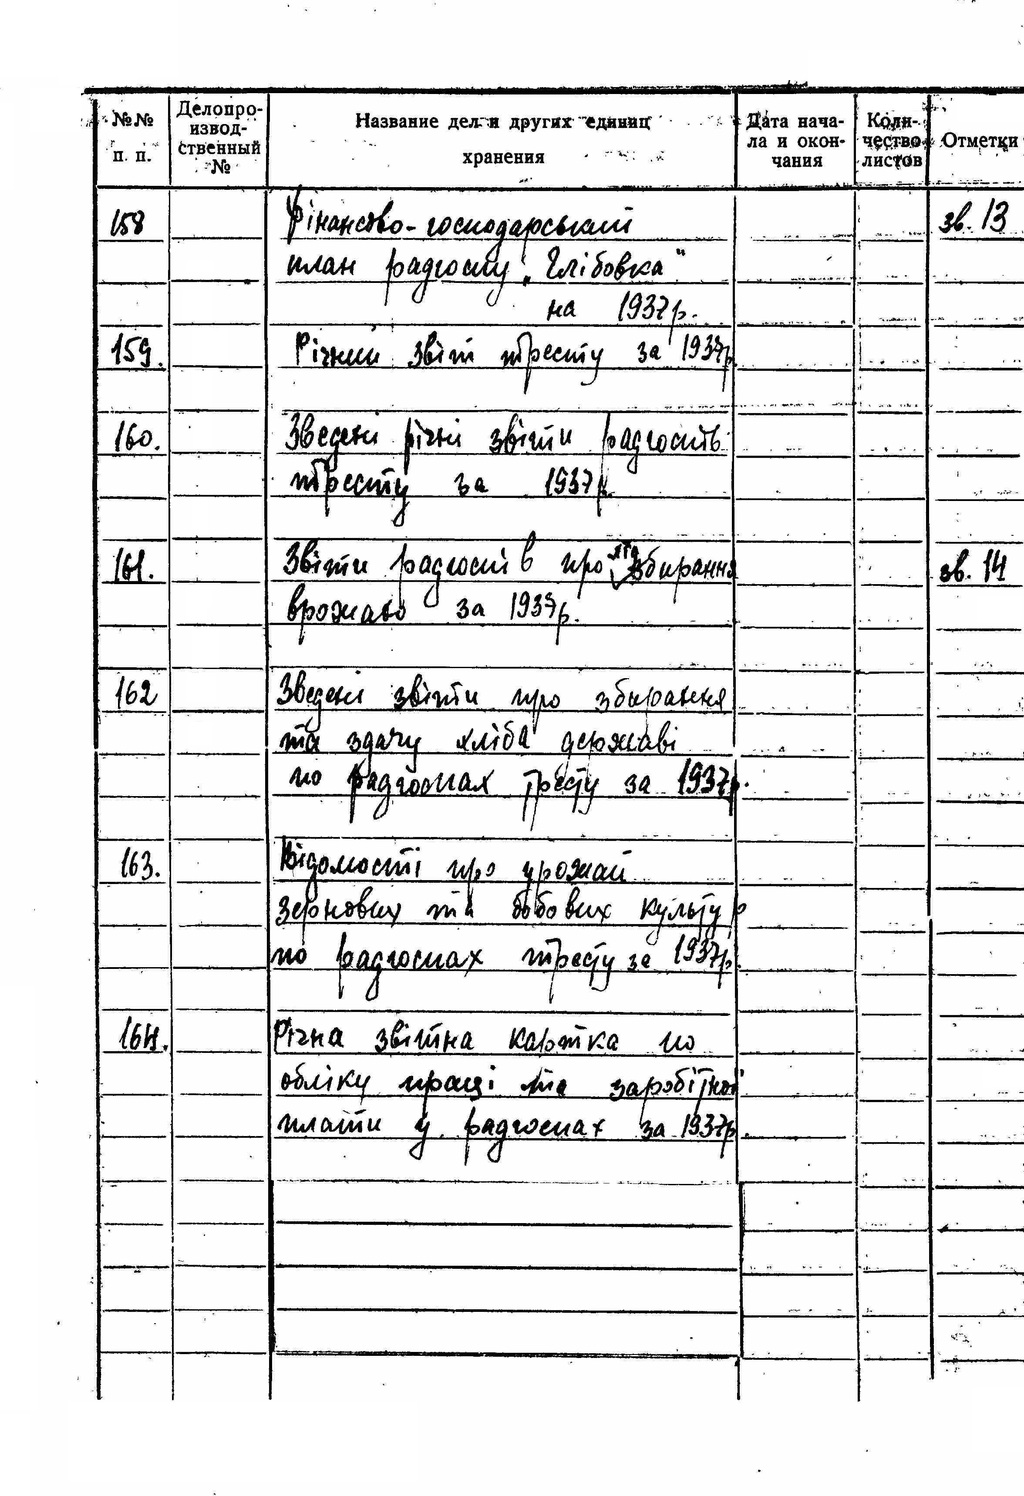 №№ п. п.
Делопроизводственный №
Название дел и других единиц хранения
Дата начала и окончания
Количество листов
Отметки
158 Фінансово-господарський зв. 13
план радгоспу „Глібовка"
на 1937р.
159. Річний звіт тресту за 1937р.
160. Зведені річні звіти радгоспів
тресту за 1937р.
161. Звіти радгоспів про збирання зв. 14
врожаю за 1937р.
162 Зведені звіти про збирання
та здачу хліба державі
по радгоспах тресту за 1937р.
163. Відомості про урожай
зернових та бобових культур
по радгоспах тресту за 1937р.
164. Річна звітна картка по
обліку праці та заробітної
плати у радгоспах за 1937р.